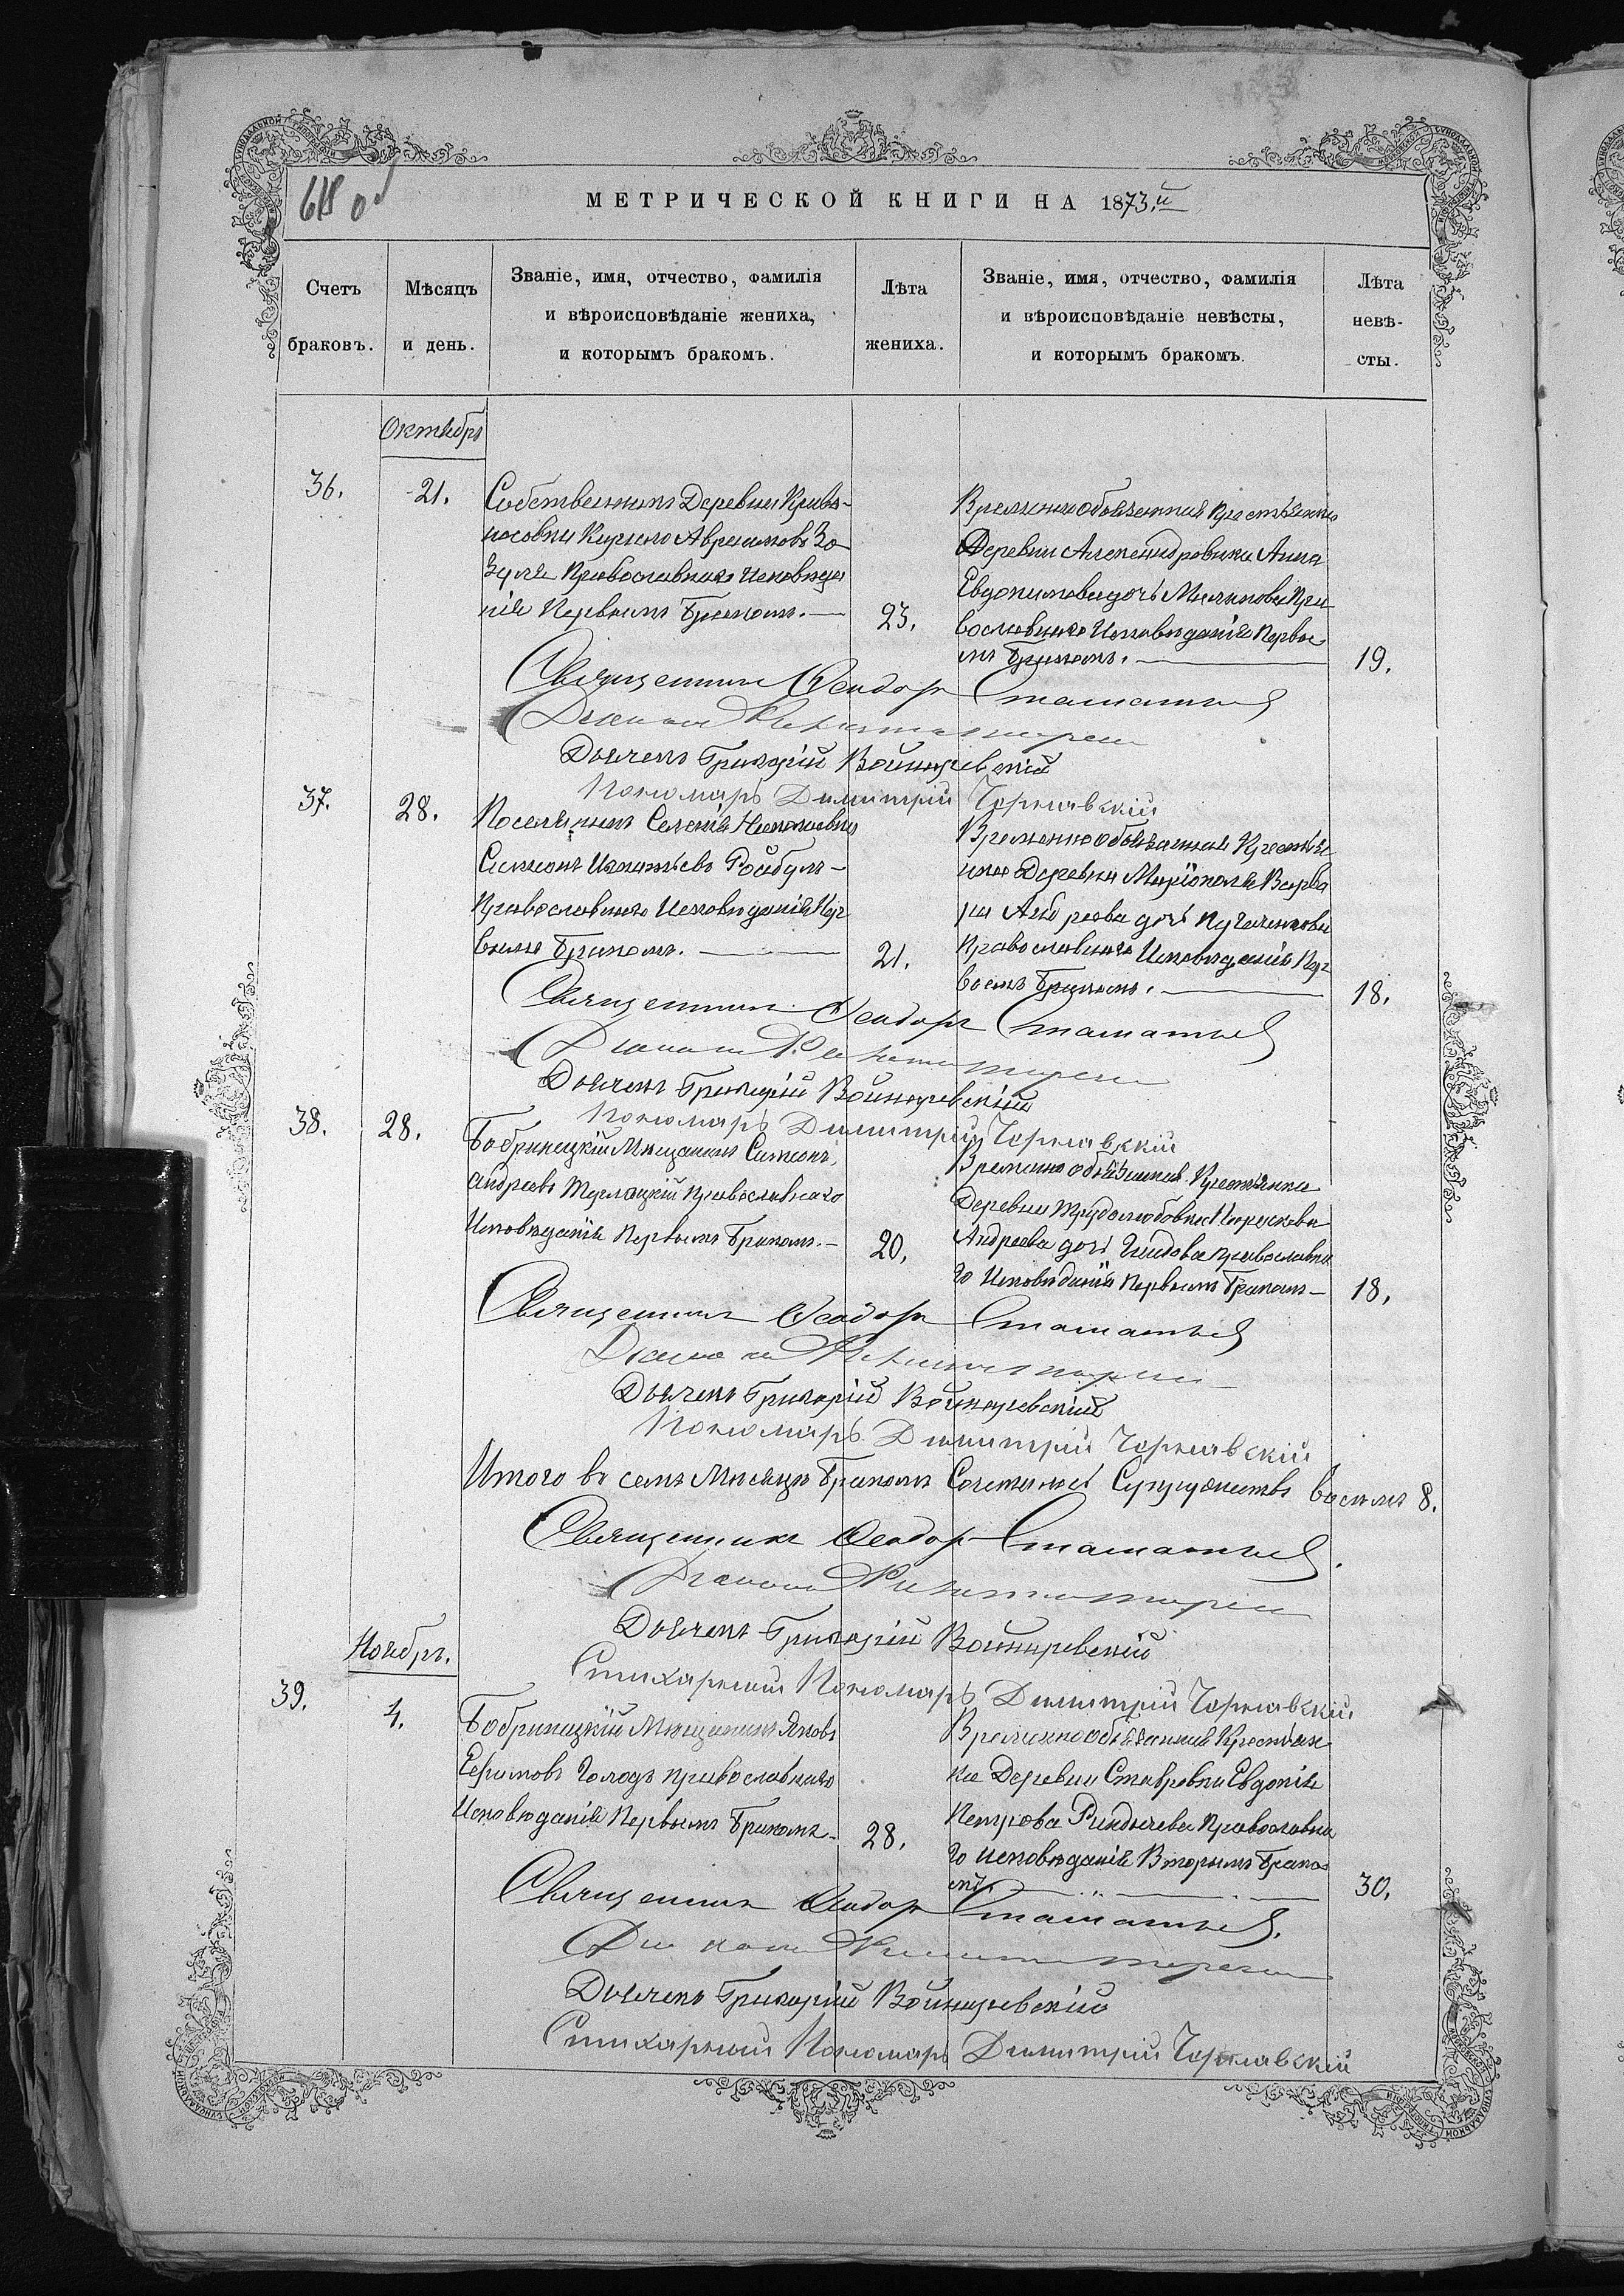 618 об
МЕТРИЧЕСКОЙ КНИГИ НА 1873.й
Счетъ браковъ.
Мѣсяцъ и день.
Званіе, имя, отчество, фамилія
и вѣроисповѣданіе жениха,
и которымъ бракомъ.
Лѣта жениха.
Званіе, имя, отчество, фамилія
и вѣроисповѣданіе невѣсты,
и которымъ бракомъ.
Лѣта невѣ-
сты.
Октябрь
36.
21.
Собственникъ Деревни Криво-
носовки Кирило Аврамовъ Зо
зуля Православнаго Исповѣда
нія Первымъ бракомъ.
23.
Временно обязанная Крестьянка
Деревни Александровки Анна
Евдокимова дочь Пра
вославнаго Исповѣданія Первы
мъ бракомъ.
19.
Священникъ Ѳеодоръ Стаматьев
Діаконъ
Дьячекъ Григорій Войнаревскій
Пономарь Димитрій Чернявскій
37.
28.
Поселянинъ Селенія
Симеонъ Игнатьевъ Ройбулъ
Православнаго Исповѣданія Пер
вымъ бракомъ.
21.
Временно обязанная Крестья
нка Деревни Маріополя Варва
ра Андреева дочь
Православнаго Исповѣданія Пер
вымъ бракомъ.
18.
Священникъ Ѳеодоръ Стаматьев
Діаконъ
Дьячекъ Григорій Войнаревскій
Пономарь Димитрій Чернявскій
38.
28.
Бобринецкій Мѣщанинъ Симеонъ
Андреевъ Терлецкій Православнаго
Исповѣданія Первымъ бракомъ.
20.
Временно обязанная Крестьянка
Деревни Трудолюбовки Параскева
Андреева дочь Православна
го Исповѣданія Первымъ бракомъ
18.
Священникъ Ѳеодоръ Стаматьев
Діаконъ
Дьячекъ Григорій Войнаревскій
Пономарь Димитрій Чернявскій
Итого въ семъ Мѣсяцѣ бракомъ Сочеталось Супружествъ восемь 8.
Священникъ Ѳеодоръ Стаматьев.
Діаконъ
Дьячекъ Григорій Войнаревскій
Стихарный Пономарь Димитрій Чернявскій
Ноябрь.
39.
4.
Бобринецкій Мѣщанинъ Яковъ
Ефимовъ Голодъ Православнаго
Исповѣданія Первымъ бракомъ.
28.
Временно обязанная Крестьян
ка Деревни Ставровки Евдокія
Петрова Православна
го Исповѣданія Вторымъ брако
мъ.
30.
Священникъ Ѳеодоръ Стаматьев.
Діаконъ
Дьячекъ Григорій Войнаревскій
Стихарный Пономарь Димитрій Чернявскій